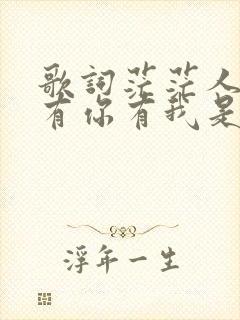 歌詞茫茫人
有你有我是
浮年一生